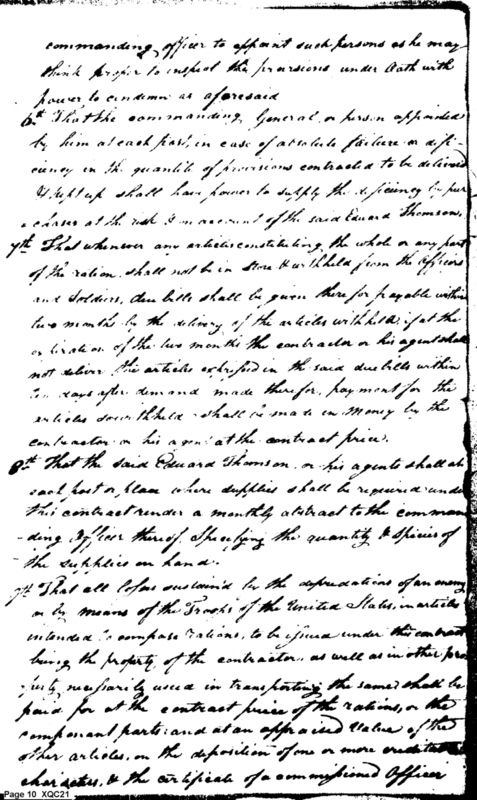 commanding officer to appoint such persons as he may
think proper to inspect the provisions under Oath with
power to condemn as aforesaid
6th That the commanding General, or person appointed
by him at each post, in case of absolute failure or defi-
ciency in the quantity of provisions contracted to be delivered
& kept up shall have power to supply the deficiency by pur
chases at the risk & on account of the said Edward Thomson,
7th That whenever any articles constituting the whole or any part
of the ration, shall not be in Store & withheld from the Officers
and Soldiers, due bills shall be given there for payable within
two months by the delivery of the articles withheld; if at the
expiration of the two months the contractor or his agent shall
not deliver the articles expressed in the said due bills within
ten days after demand made therefor, payment for the
articles so withheld shall be made in Money by the
contractor or his agent at the contract price.
8th That the said Edward Thomson or his agents shall at
each post or place where supplies shall be required under
this contract render a monthly abstract to the comman
-ding Officer thereof, Specifying the quantity & Species of
the supplies on hand.
9th That all losses sustain'd by the depredations of an enemy
or by means of the Troops of the United States, in articles
intended to compose rations, to be issued under this contract
being the property of the contractor, as well as in other pro
perty necessarily used in transporting the same shall be
paid for at the contract price of the rations, or the
component parts: and at an appraised Value of the
other articles, on the deposition of one or more creditable
characters, & the certificate of a commissioned Officer
Page 10 XQC21